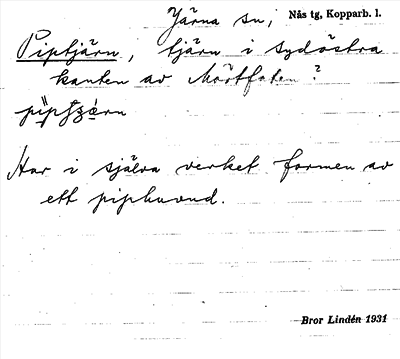 Järna sn, Nås tg, Kopparb. l.
Piptjärn, tjärn i sydöstra
kanten av Mörtfaten?
Har i själva verket formen av
ett piphuvud.
Bror Lindén 1931